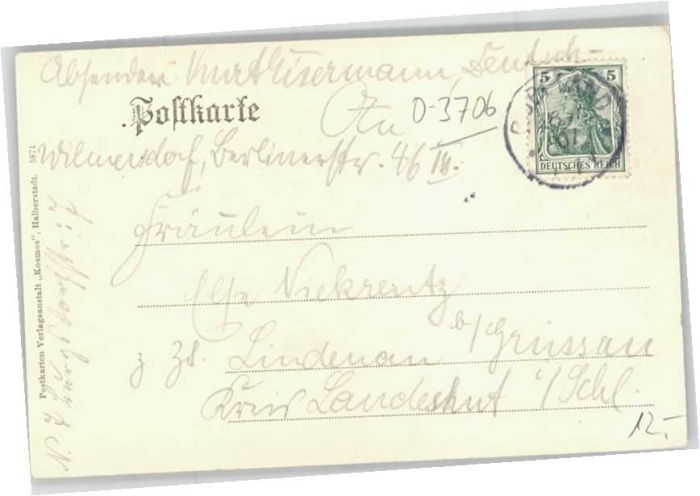 Absender Kurt Eisermann, Deutsch-
Postkarte
An
D-3706
Wilmersdorf, Berlinerstr. 46 III.
5
5
DEUTSCHES REICH
Fräulein
Else Nickrentz
z. Zt. Lindenau b/Grüssau
Kreis Landeshut i/Schl.
12.-
Postkarten Verlagsanstalt „Kosmos“, Halberstadt. 5871